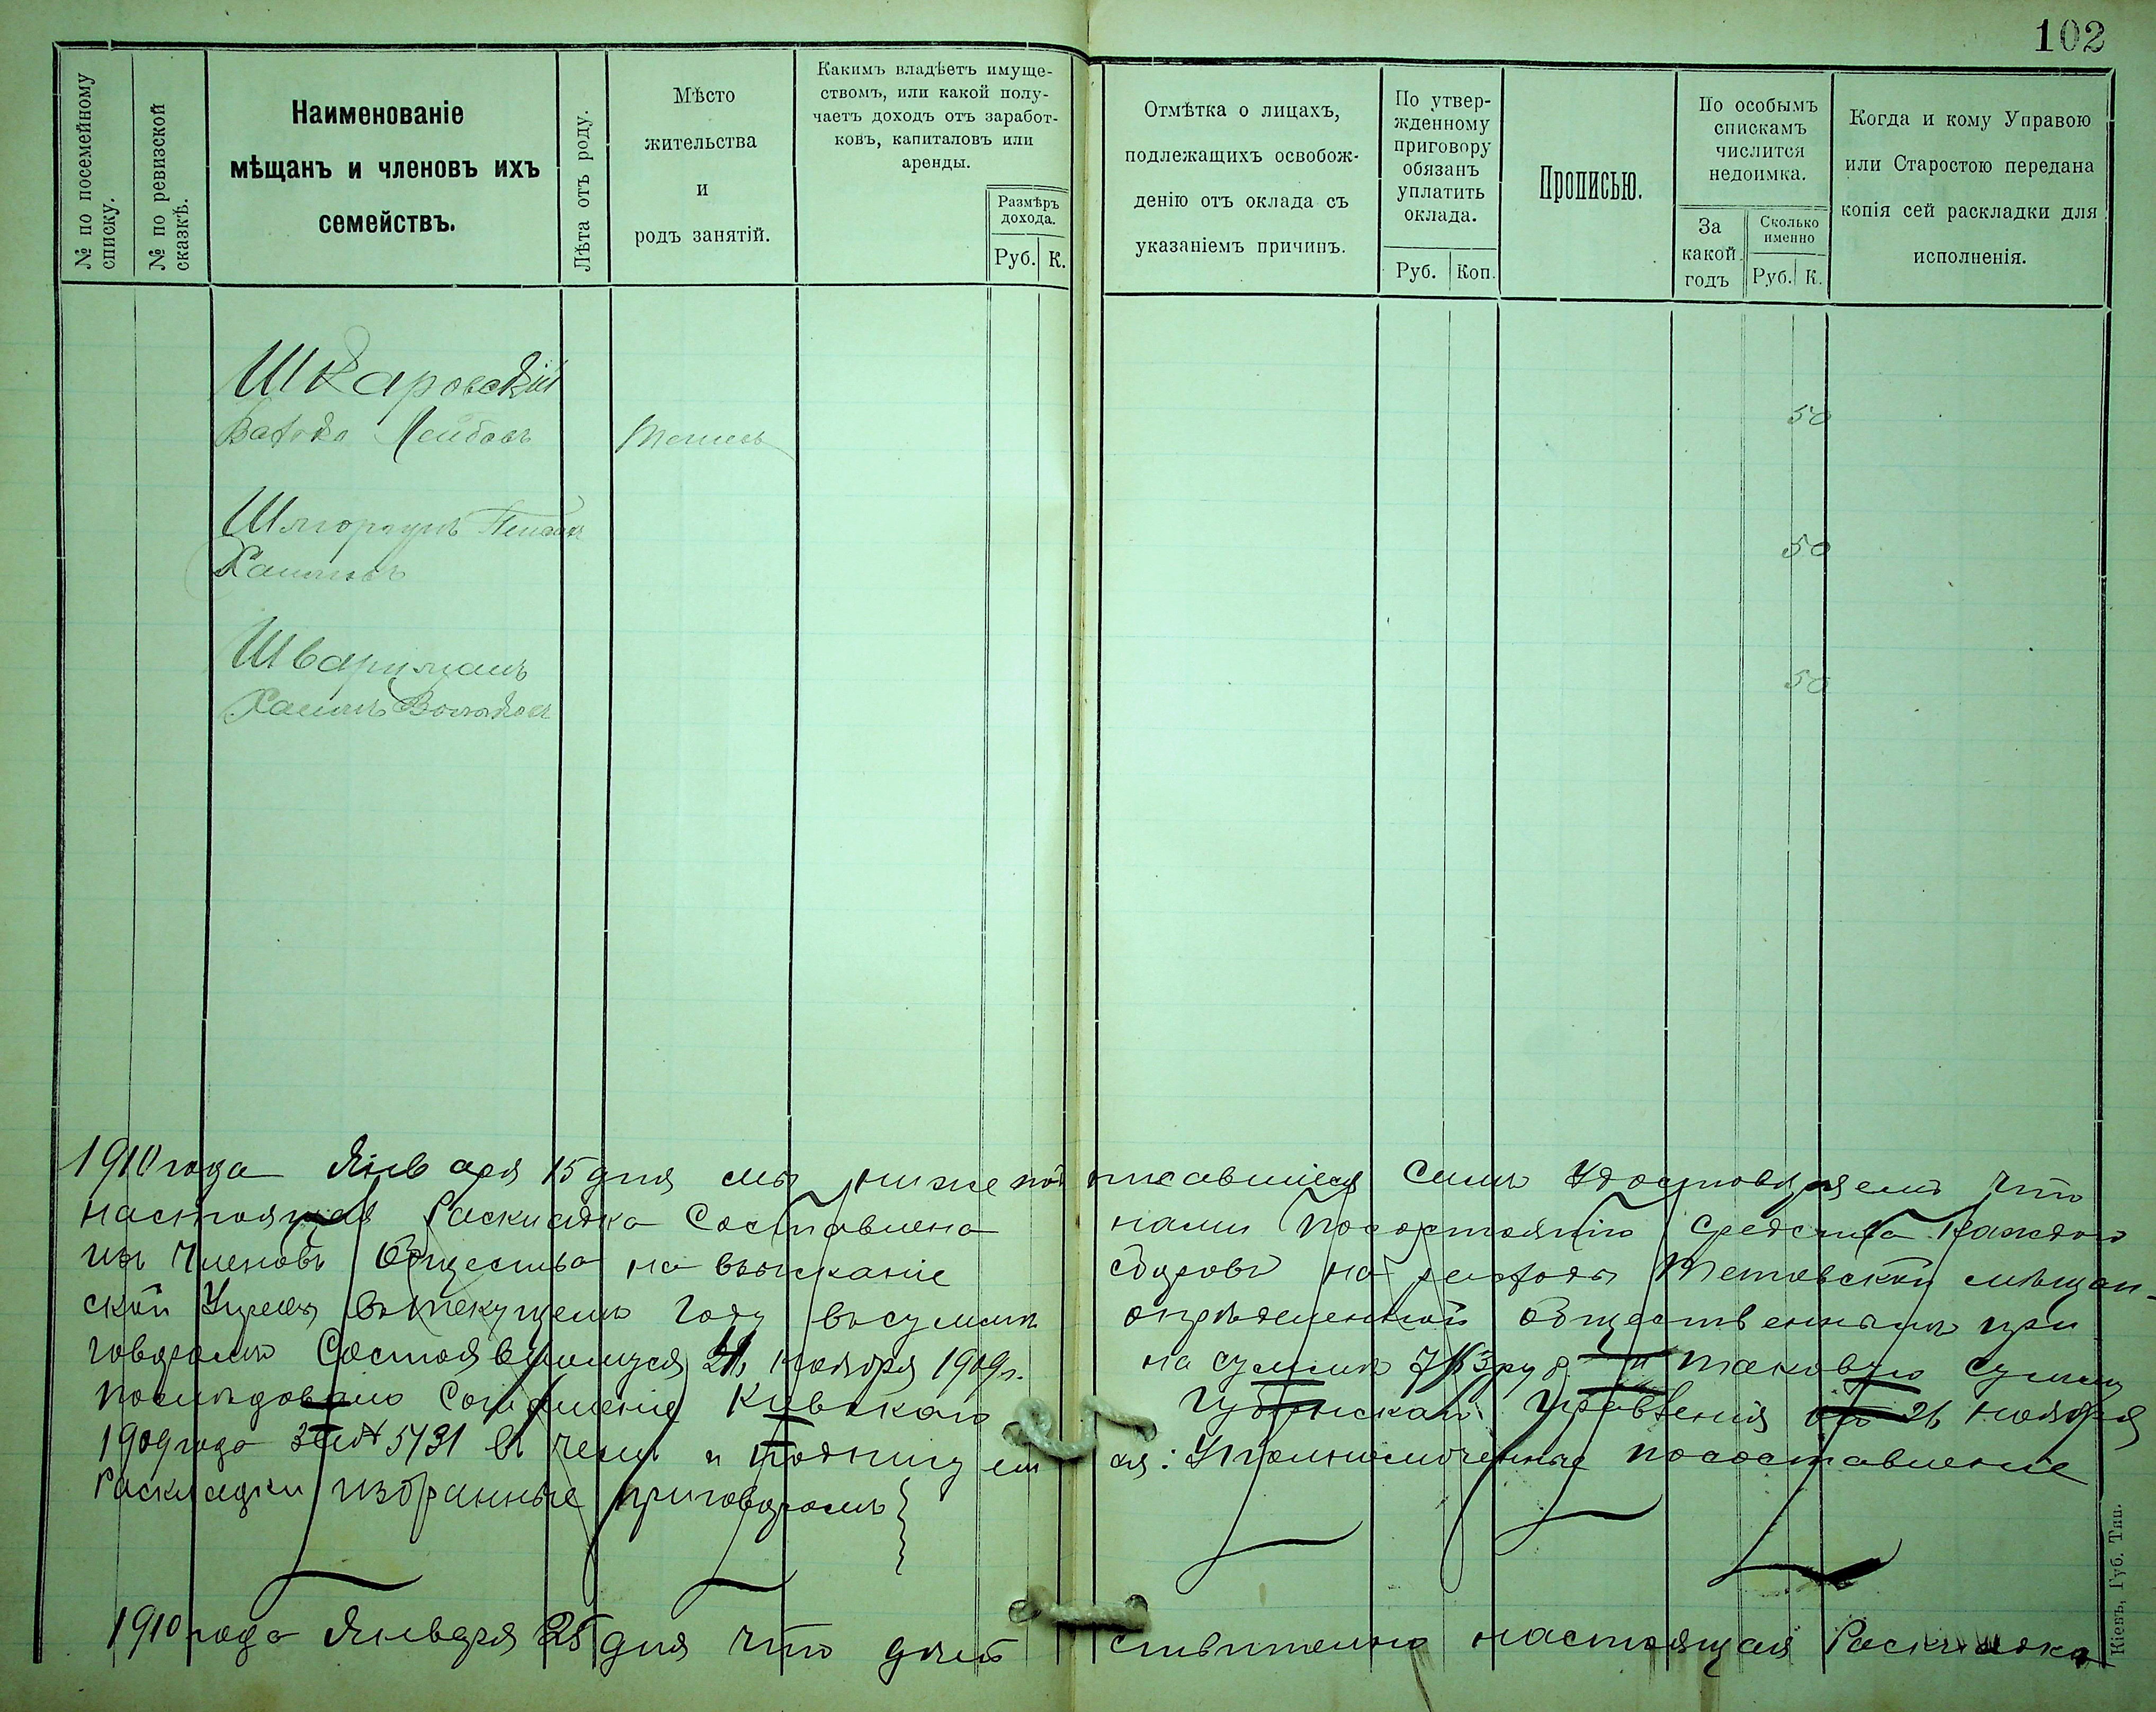 102
№ по посемейному
списку.
№ по ревизской
сказкѣ.
Наименованіе
мѣщанъ и членовъ ихъ
семействъ.
Лѣта отъ роду.
Мѣсто
жительства
и
родъ занятій.
Какимъ владѣетъ имуще-
ствомъ, или какой полу-
чаетъ доходъ отъ заработ-
ковъ, капиталовъ или
аренды.
Размѣръ
дохода.
Руб. К.
Отмѣтка о лицахъ,
подлежащихъ освобож-
денію отъ оклада съ
указаніемъ причинъ.
По утвер-
жденному
приговору
обязанъ
уплатить
оклада.
Руб. Коп.
Прописью.
По особымъ
спискамъ
числится
недоимка.
За
какой
годъ
Сколько
именно
Руб. К.
Когда и кому Управою
или Старостою передана
копія сей раскладки для
исполненія.
Шкаровскій
Лейбовъ 50
50
Шварцманъ
Хаимъ 50
1910 года Января 15 дня мы нижеподписавшіеся симъ удостовѣряемъ что
настоящая Раскладка Составлена нами по состоянію средствъ каждаго
изъ Членовъ Общества на взысканіе сборовъ на расходы Тетіевской мѣщан-
ской Управы въ текущемъ году въ суммѣ опредѣленной общественнымъ при
говоромъ Состоявшимся ноября 1909 г. на сумму руб. и таковую сумму
послѣдовало Соглашеніе Кіевскаго Губернскаго Правленія отъ 26 ноября
1909 года за № 5731 въ чемъ и подпишемся: Уполномоченные по составленіе
Раскладки избранные приговоромъ
1910 года Января 25 дня что дѣйствительно настоящая Раскладка
Кіевъ, Губ. Тип.